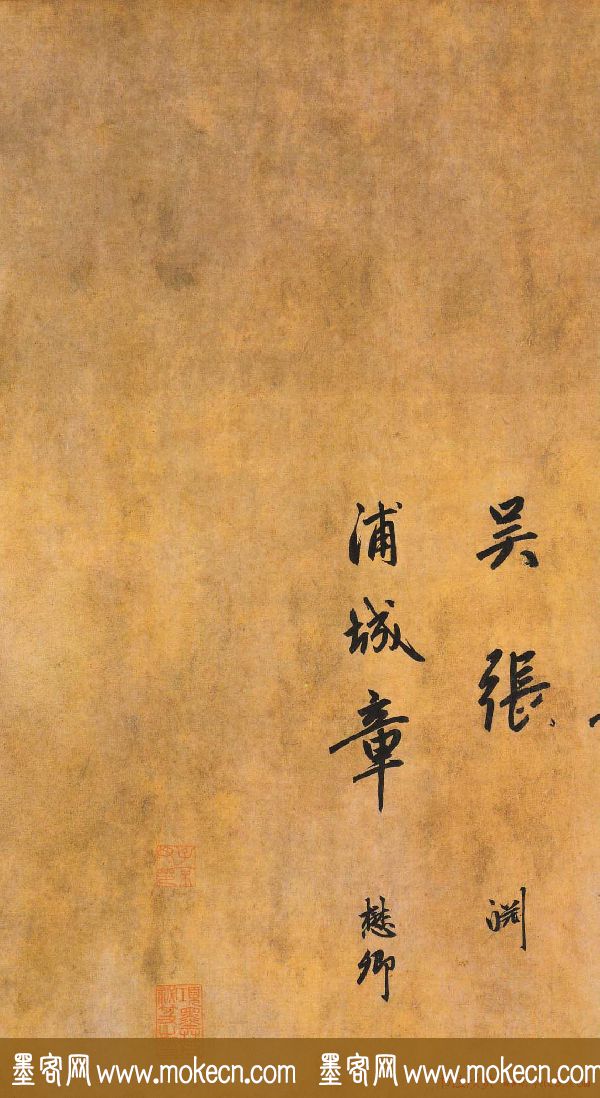 吴張渊
浦城章懋卿
子京
父印
項墨林
墨客网 www.mokecn.com 墨客网 www.mokecn.com